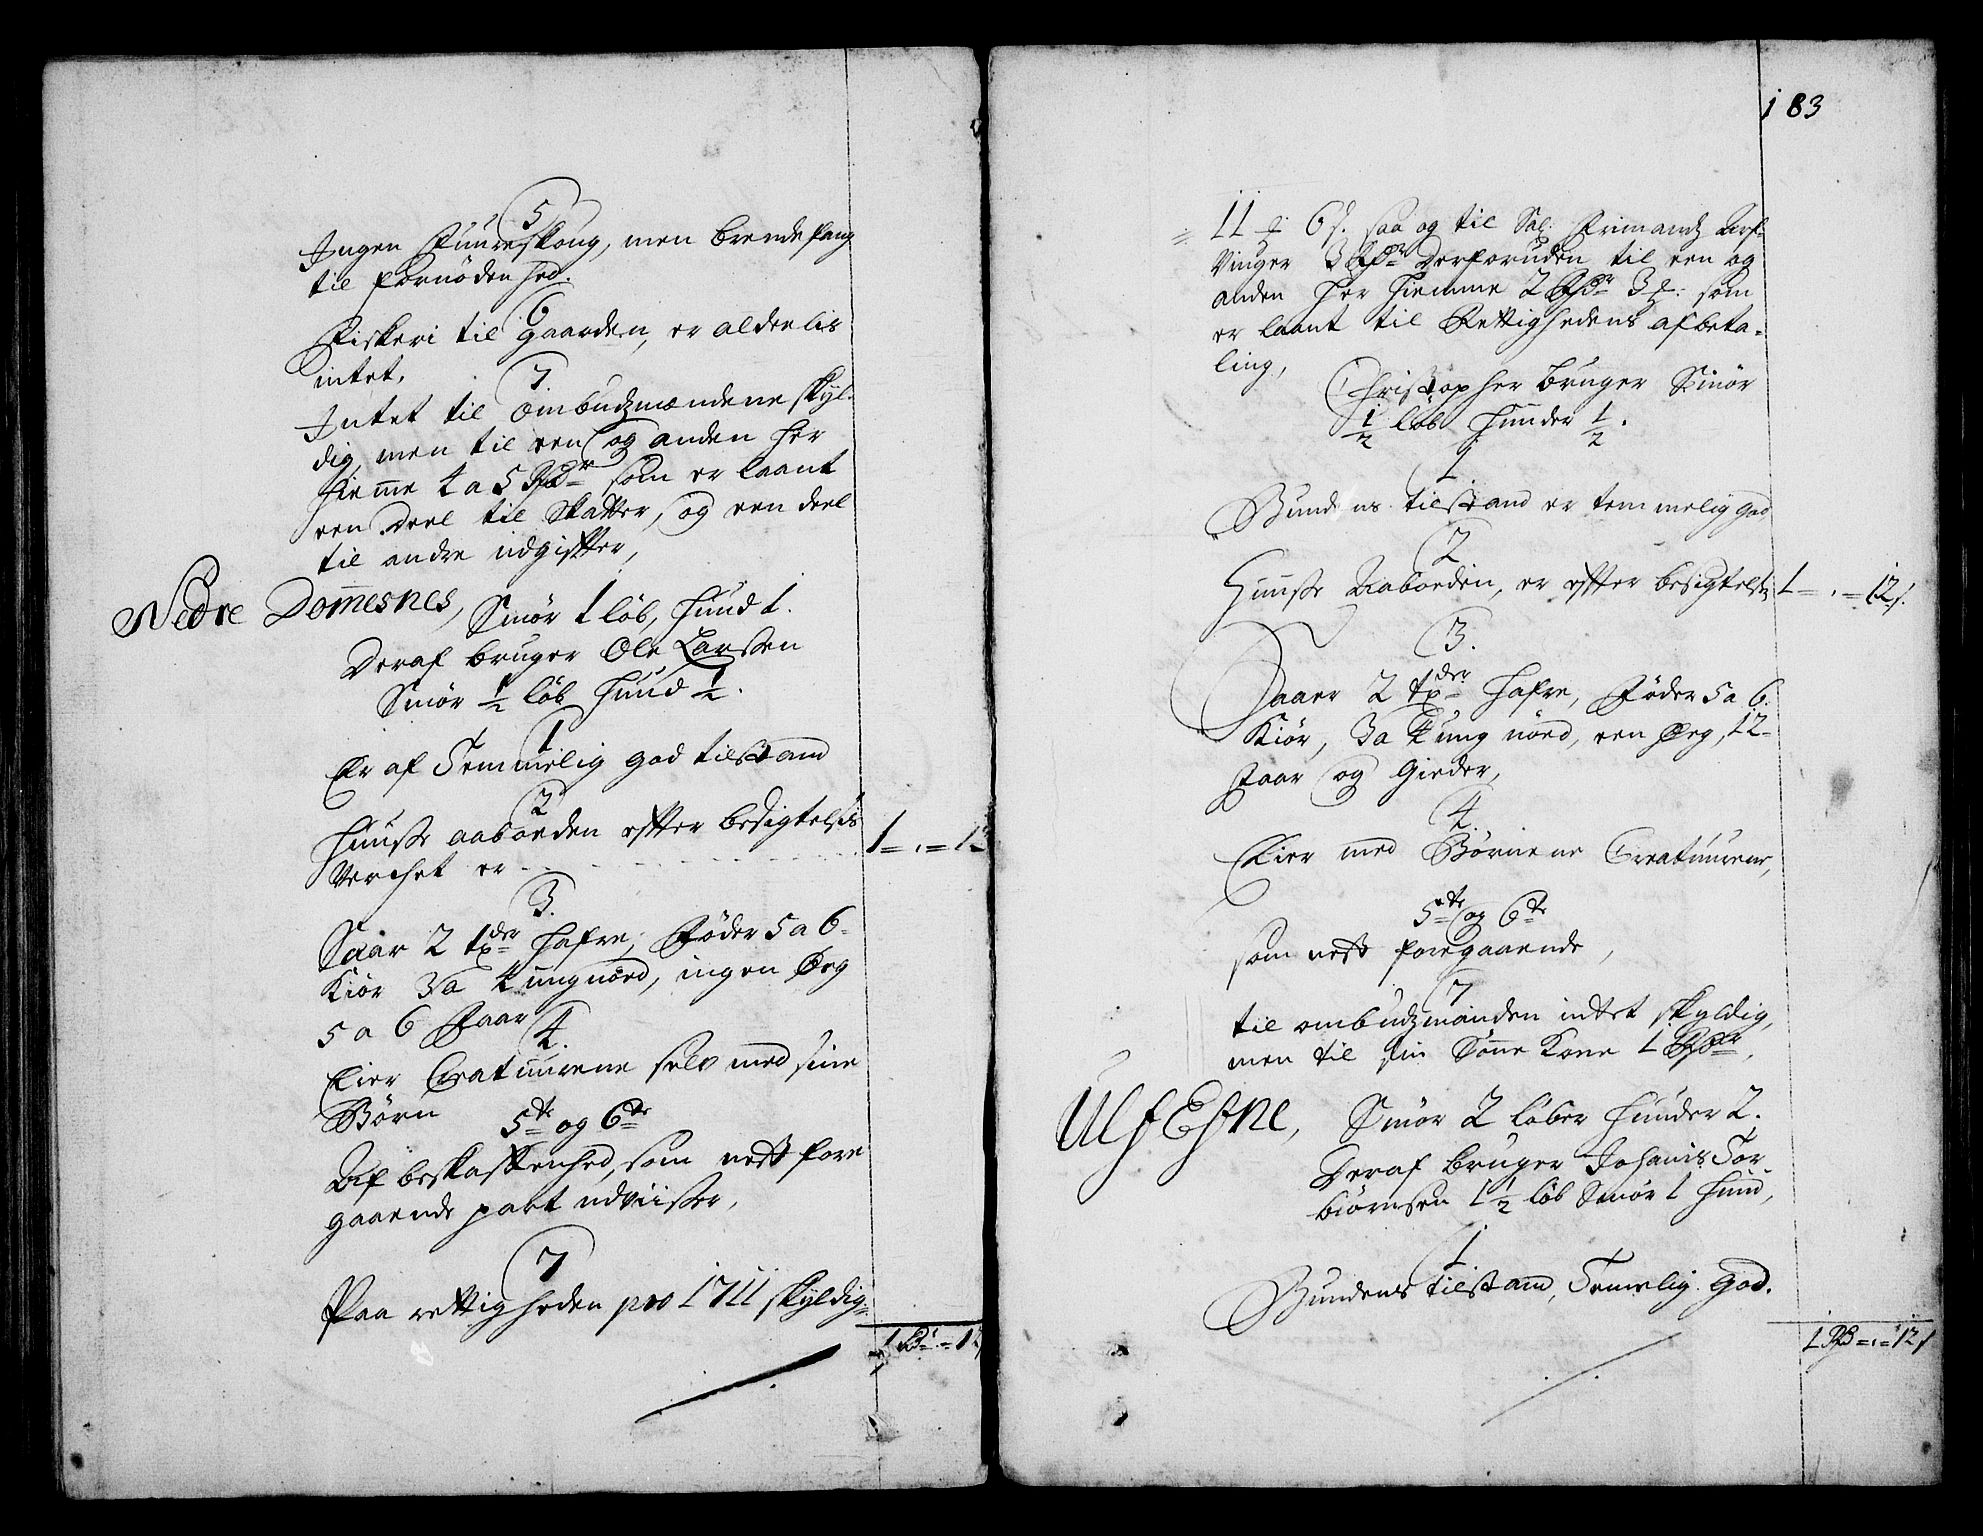 5
Ingen Fuureskoug, men brendefang
til fornødenhed.
6
Fiskeri til gaarden, er aldelis
intet,
7
Intet til Ombudzmændene skyl-
dig, men til een og anden her
hiemme 4 a 5 Rdr som er laant
een deel til Skatter, og een deel
til andre udgiffter,
Nedre Domesnes, Smør 1 løb, huud 1.
Deraf bruger Ole Larssen
Smør 1/2 løb huud 1/2.
1
Er af Temmelig god tilstand
2
Huusse aaboeden effter besigtelsis
verchet er - - - 1 = . = 12
3.
Saar 2 tder hafre, føder 5 a 6
Kiør 3 a 4 ungnöed, ingen Øeg
5 a 6 Faar
4.
Eier Creatuurene selv med sine
Børn
5te og 6te
Af beskaffenhed, som nest fore
gaaende part udviisser,
7
Paa rettigheden pro 1711 skyldig
1 Rd = . = 12
183
11 s: saa og til Sal: Frimandz Arf-
vinger 3 Rdr Derforuden til een og
anden her hiemme 2 Rdr 3 : som
er laant til Rettighedens afbeta-
ling,
Christopher bruger Smør
1/2 løb huuder 1/2.
1
Bundens tilstand er temmelig god
2
Huusse Aaboeden, er effter besigtelse 1 = . = 12 s.
3.
Saaer 2 tder hafre, føder 5 a 6.
Kiør, 3 a 4 ung nöed, een Øeg, 12
faar og Gieder,
4.
Eier med Børnene Creatuurene,
5te og 6te
som nest foregaaende,
7
til ombudzmanden intet skyldig,
men til sin Sönne Kone 1 Rdr,
UlfEsne, Smør 2 løber huuder 2.
Deraf bruger Johanis Tor
biørnsen 1 1/2 løb Smør 1 huud,
1
Bundens tilstand, Temelig god.
1 Rd = . = 12 s